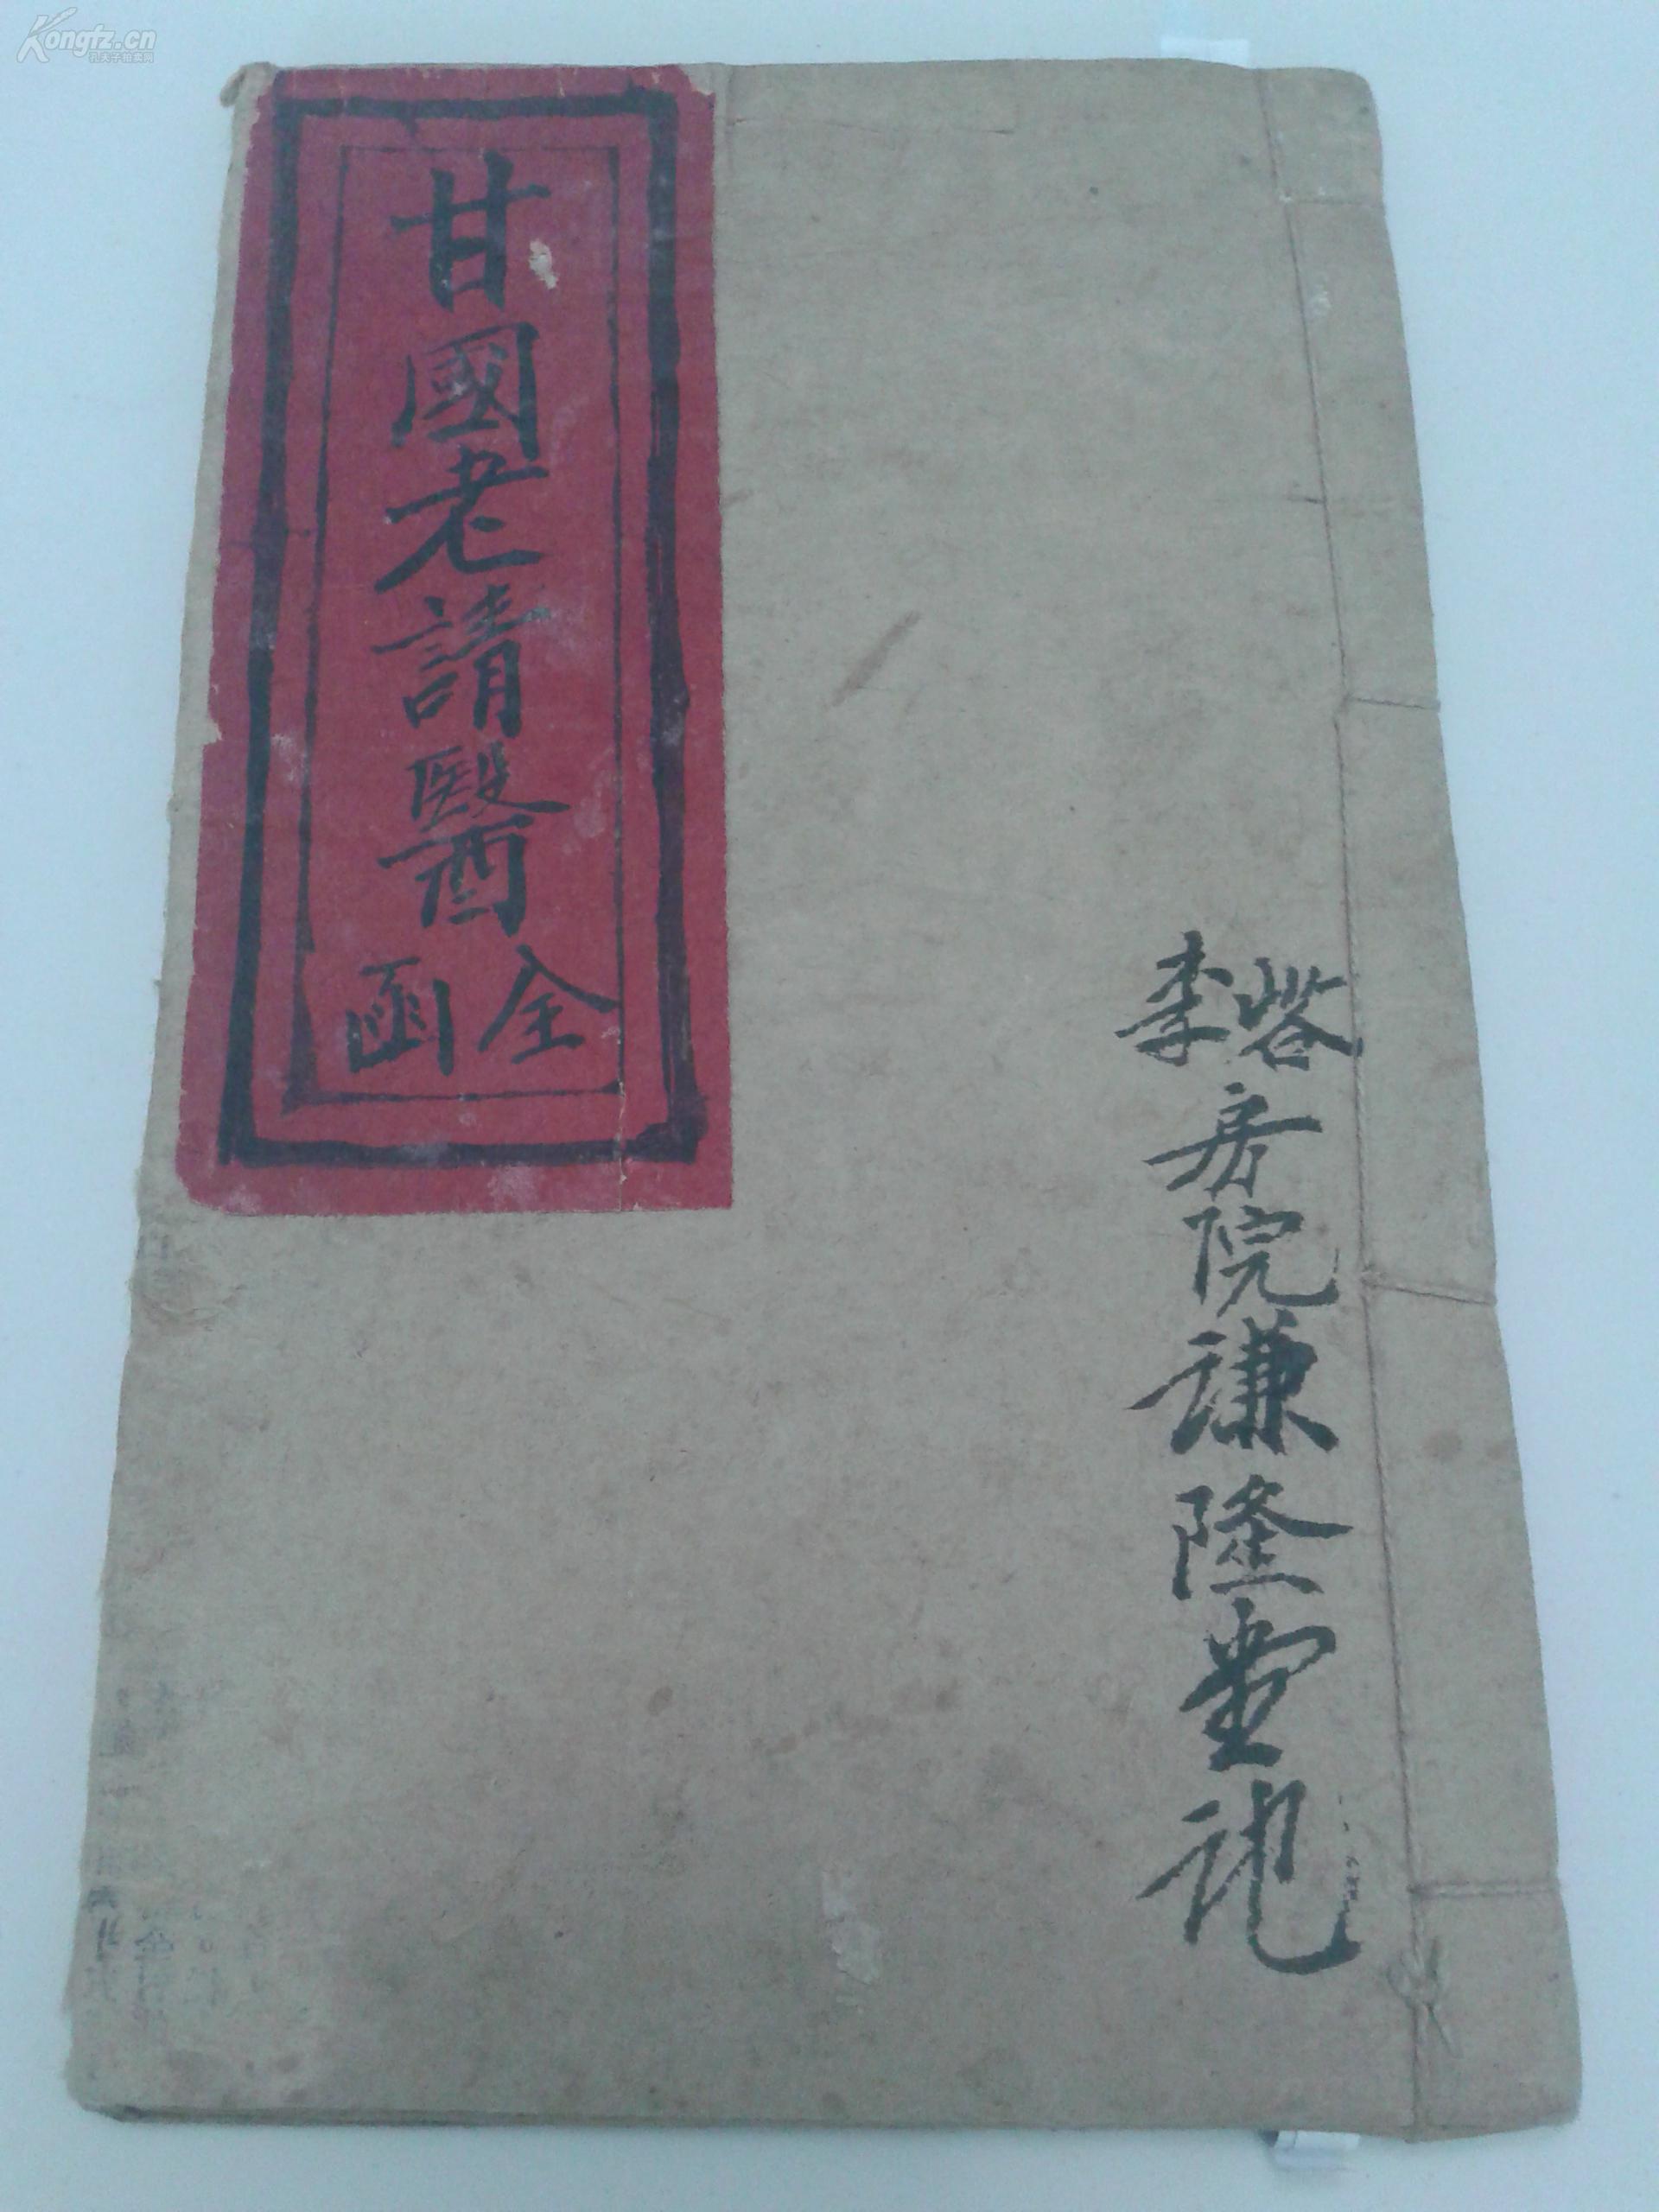 Kongfz.cn
甘國老請醫
全函
李
房院謙隆堂記